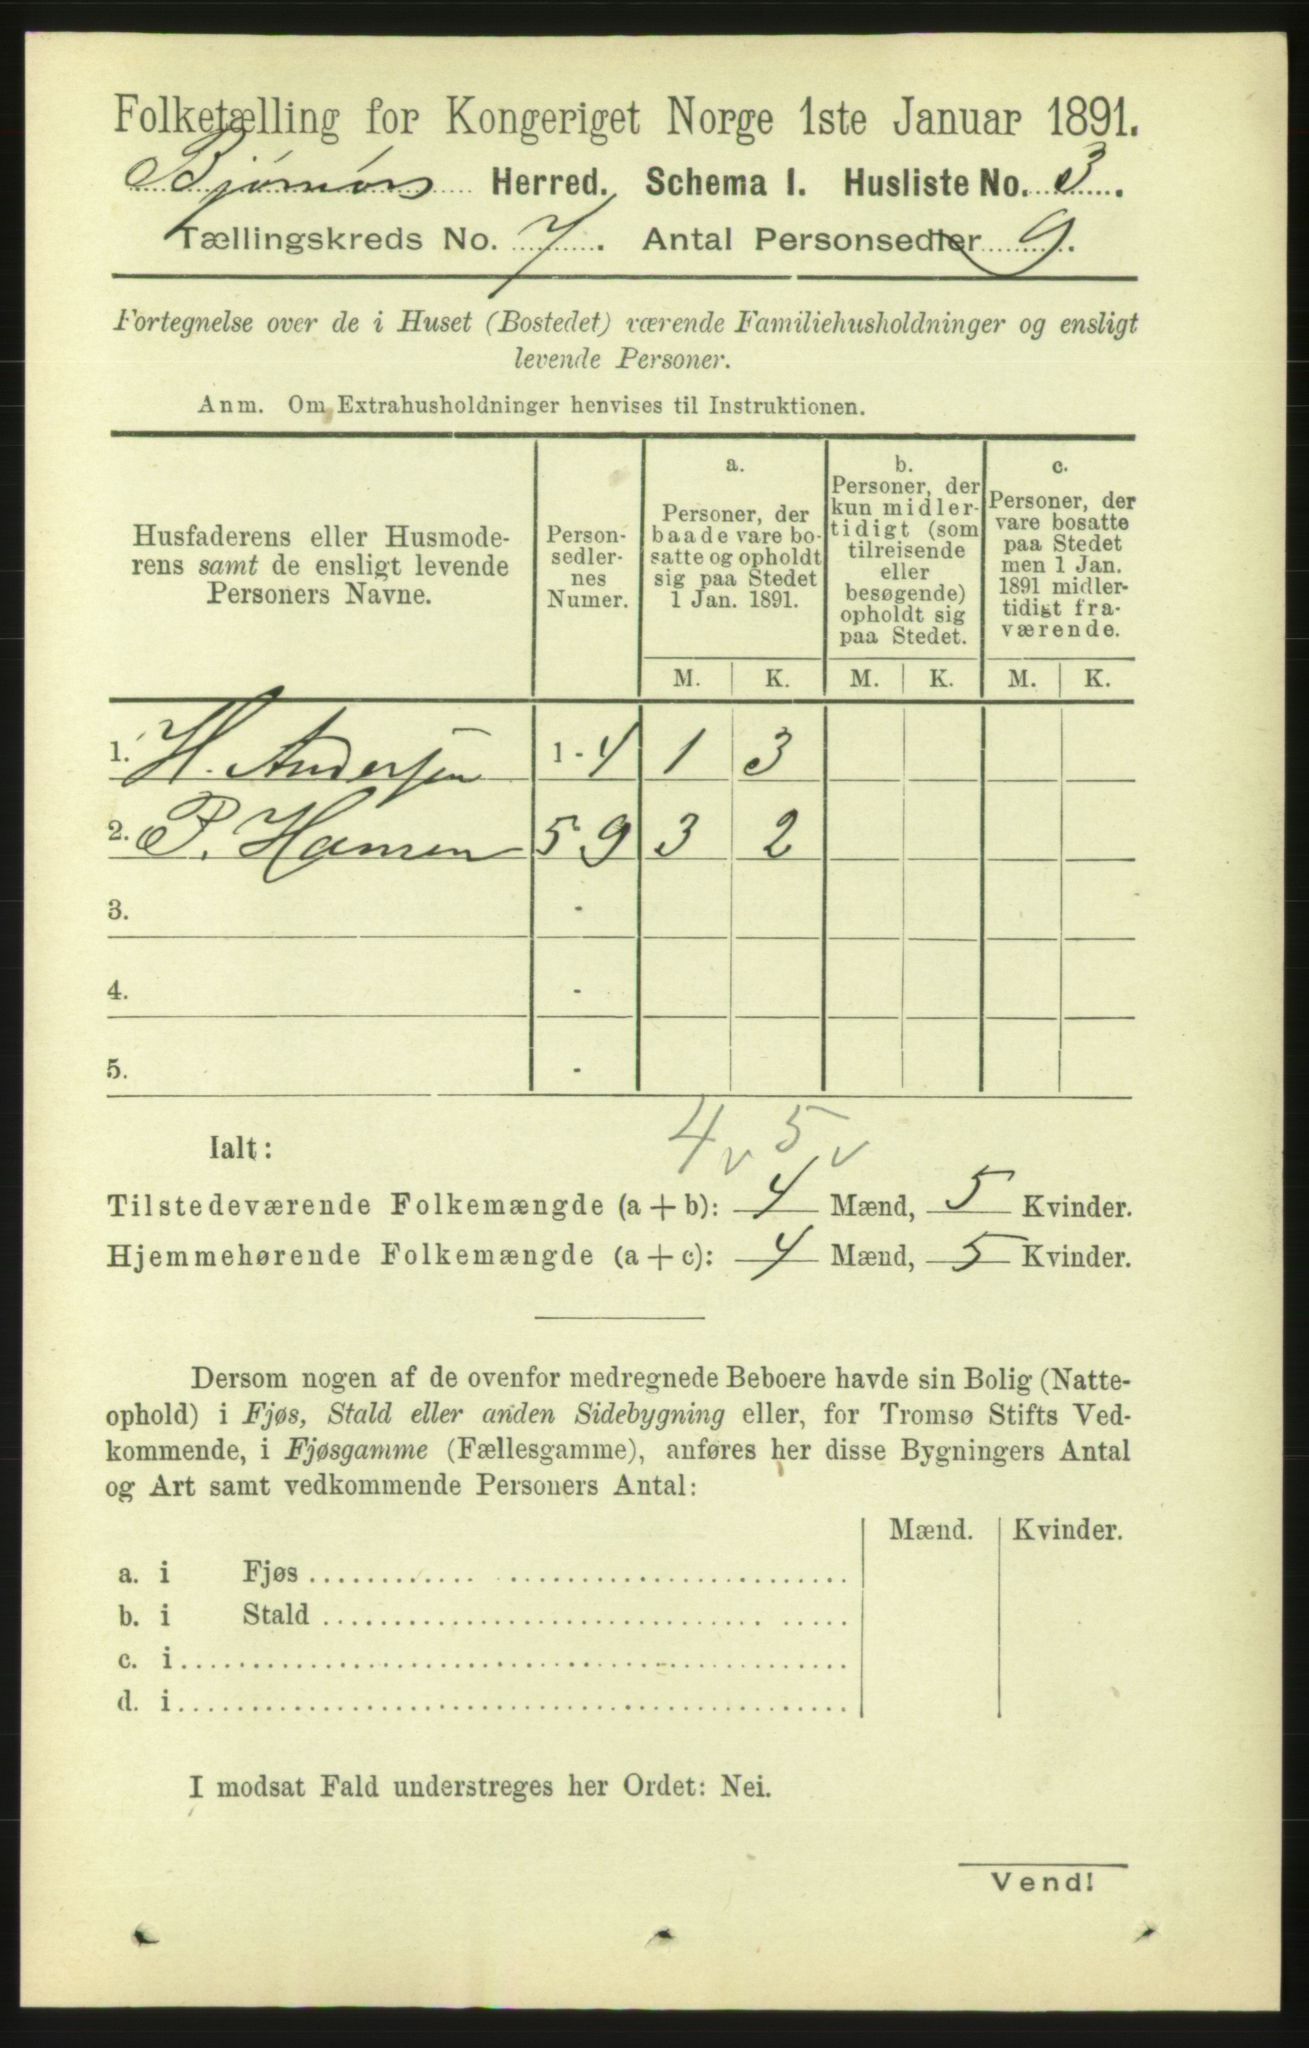 Folketælling for Kongeriget Norge 1ste Januar 1891.
Bjørnør Herred. Schema I. Husliste No. 3.
Tællingskreds No. 7. Antal Personsedler 9.
Fortegnelse over de i Huset (Bostedet) værende Familiehusholdninger og ensligt
levende Personer.
Anm. Om Extrahusholdninger henvises til Instruktionen.
Husfaderens eller Husmode-
rens samt de ensligt levende
Personers Navne.
Person-
sedler-
nes
Numer.
a.
Personer, der
baade vare bo-
satte og opholdt
sig paa Stedet
1 Jan. 1891.
b.
Personer, der
kun midler-
tidigt (som
tilreisende
eller
besøgende)
opholdt sig
paa Stedet.
c.
Personer, der
vare bosatte
paa Stedet
men 1 Jan.
1891 midler-
tidigt fra-
værende.
M. K. M. K. M. K.
1. H. Andersen 1 - 4 1 3
2. P. Hansen 5 9 3 2
3. -
4. -
5. -
4 v 5 v
Ialt:
Tilstedeværende Folkemængde (a + b): 4 Mænd, 5 Kvinder.
Hjemmehørende Folkemængde (a + c): 4 Mænd, 5 Kvinder.
Dersom nogen af de ovenfor medregnede Beboere havde sin Bolig (Natte-
ophold) i Fjøs, Stald eller anden Sidebygning eller, for Tromsø Stifts Ved-
kommende, i Fjøsgamme (Fællesgamme), anføres her disse Bygningers Antal
og Art samt vedkommende Personers Antal:
Mænd. Kvinder.
a. i Fjøs
b. i Stald
c. i
d. i
I modsat Fald understreges her Ordet: Nei.
Vend!